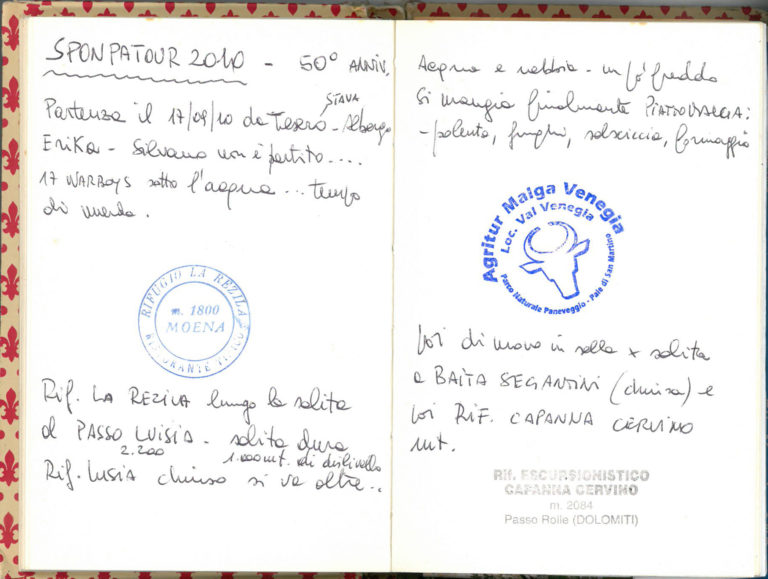 SPONPATOUR 2010 - 50° ANNIV.
Partenza il 17/09/10 da Tesero - STAVA Albergo
ERIKA - Silvano non è partito....
17 WARBOYS sotto l'acqua... tempo
di merda.
RIFUGIO LA REZILA
m. 1800
MOENA
RISTORANTE TIPICO
Rif. LA REZILA lungo la salita
al PASSO LUISIA - salita dura
2.200 1.000 mt. di dislivello
Rif. LUSIA chiuso si va oltre...
Acqua e nebbia - un pò freddo
Si mangia finalmente
- polenta, funghi, salsiccia, formaggio
Agritur Malga Venegia
Loc. Val Venegia
Parco Naturale Paneveggio - Pale di San Martino
poi di nuovo in sella x salita
a BAITA SEGANTINI (chiusa) e
poi RIF. CAPANNA CERVINO
mt.
Rif. ESCURSIONISTICO
CAPANNA CERVINO
m. 2084
Passo Rolle (DOLOMITI)